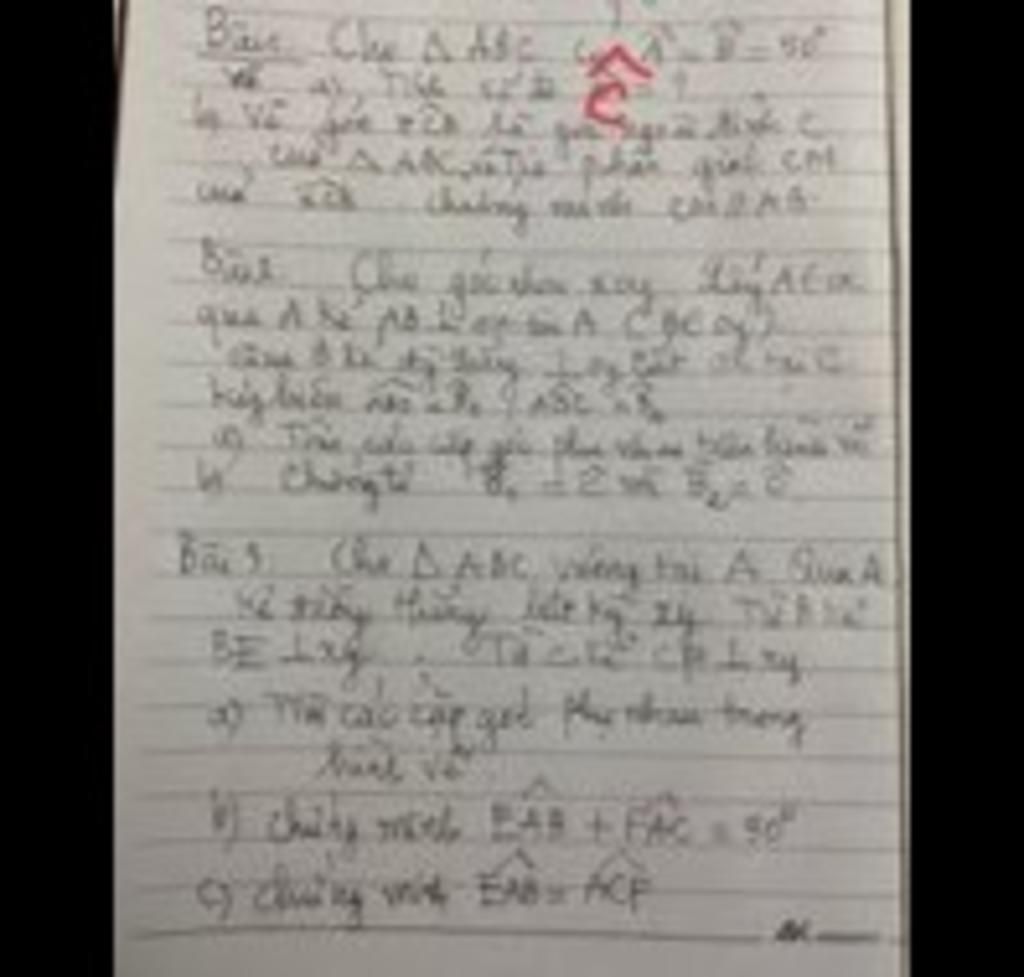 Bài 1 Cho Δ ABC có Â = B̂ = 50°
a) Tính số đo Ĉ ?
b) Vẽ góc là góc ngoài đỉnh C
của Δ ABC, vẽ tia phân giác CM
của chứng minh CM // AB
Bài 2 Cho góc nhọn xOy lấy A ∈ Ox
qua A kẻ AB ⊥ tại A (B ∈ Oy)
qua B kẻ đg thẳng ⊥ Oy cắt Ox tại C
a) Tìm các cặp góc phụ nhau trên hình vẽ
b) Chứng tỏ
Bài 3 Cho Δ ABC vuông tại A Qua A
kẻ đường thẳng bất kỳ xy Từ B vẽ
BE ⊥ xy . Từ C vẽ CF ⊥ xy
a) Tìm các cặp góc phụ nhau trong
hình vẽ
b) Chứng minh EÂB + FÂC = 90°
c) Chứng minh EÂB = AĈF